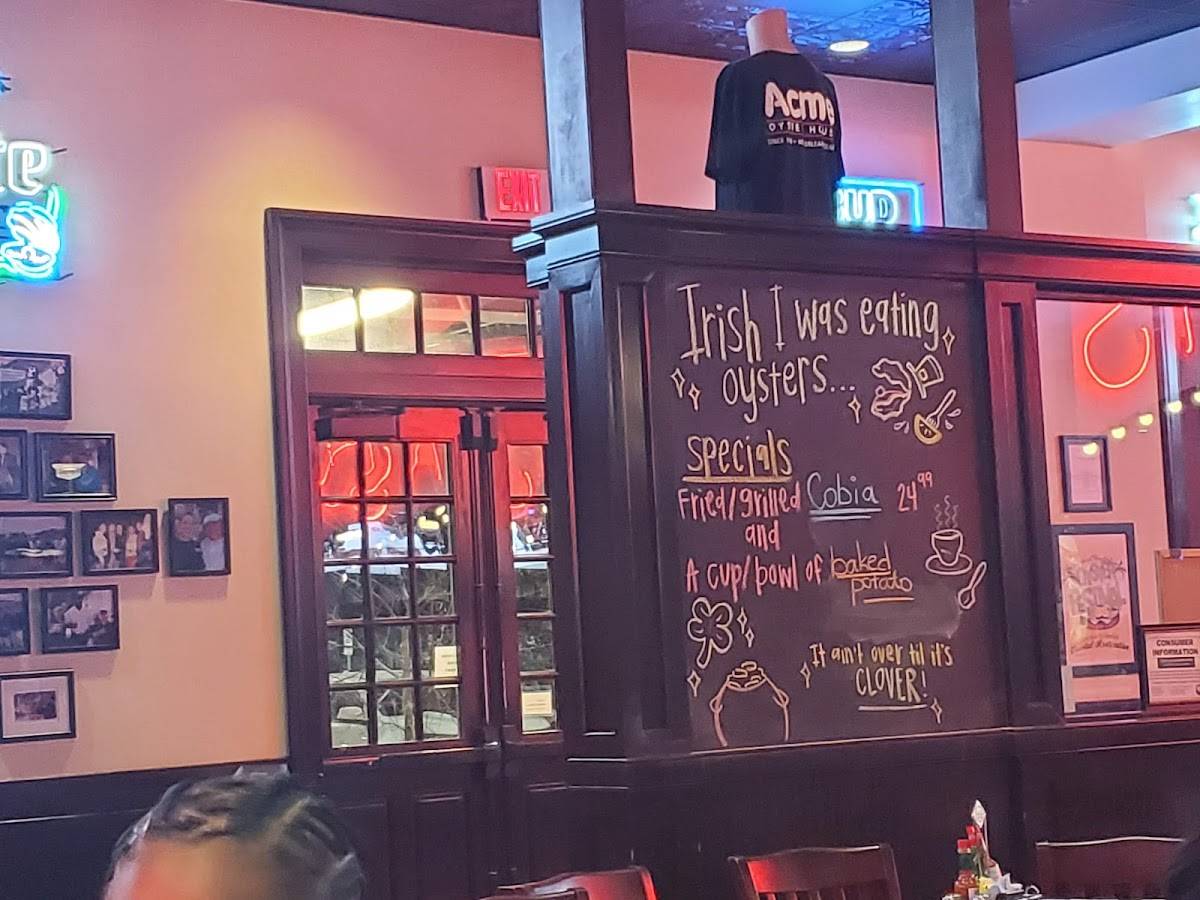 Acme
OYSTER HOUSE
EXIT
Irish I was eating
oysters...
specials
Fried/grilled Cobia 24⁹⁹
and
A cup/bowl of baked
potato
It ain't over til it's
CLOVER!
CONSUMER
INFORMATION